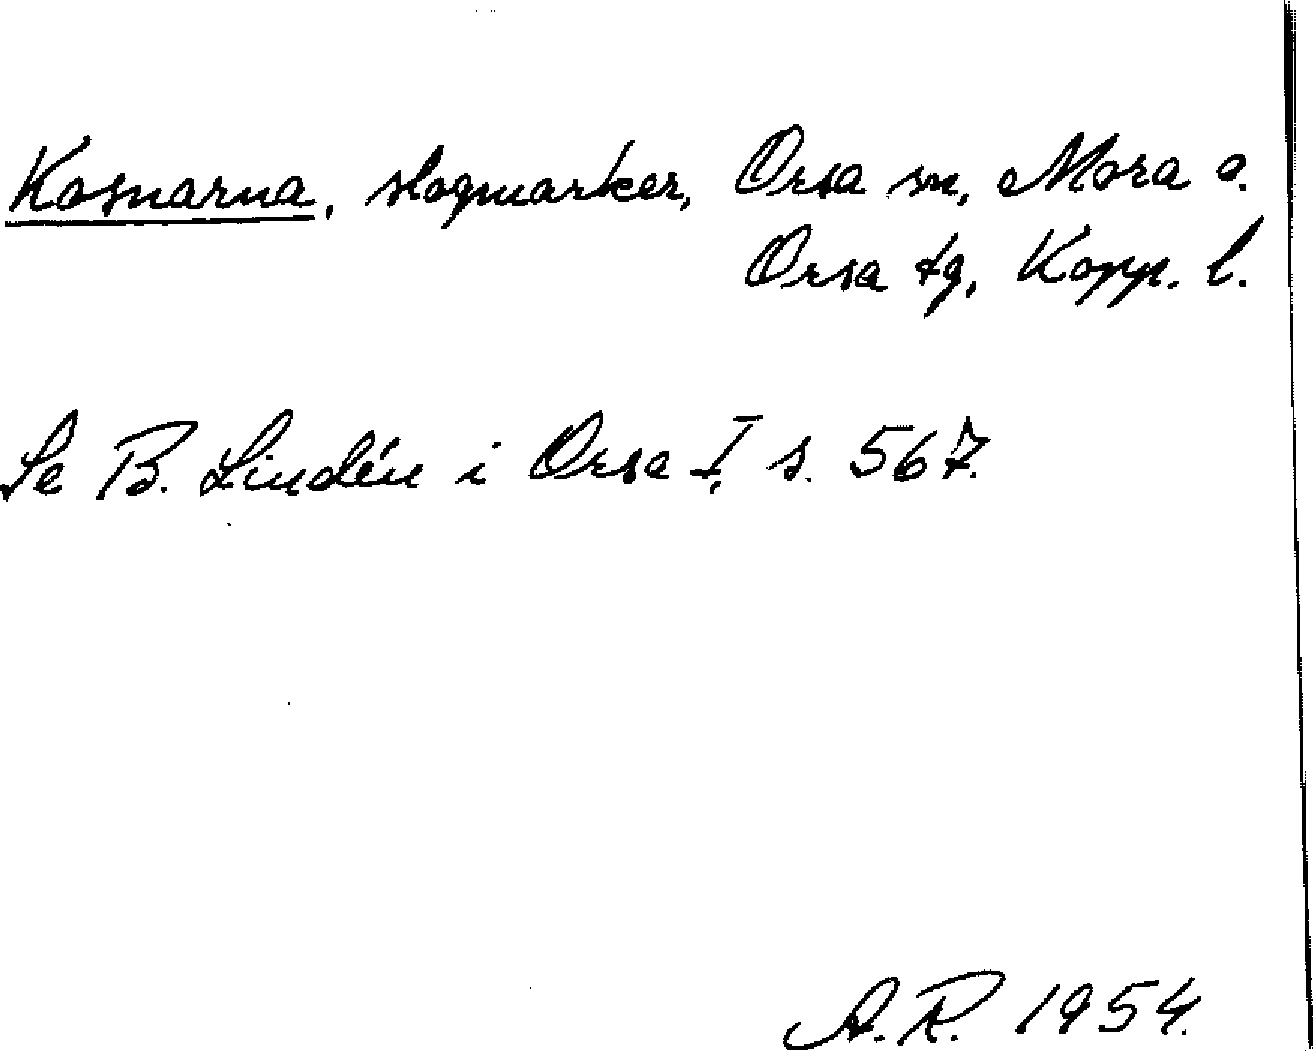 Kosnarna, slogmarker, Orsa sn, Mora o.
Orsa tg, Kopp. l.
Se B. Lindén i Orsa I, s. 567.
A.R. 1954.